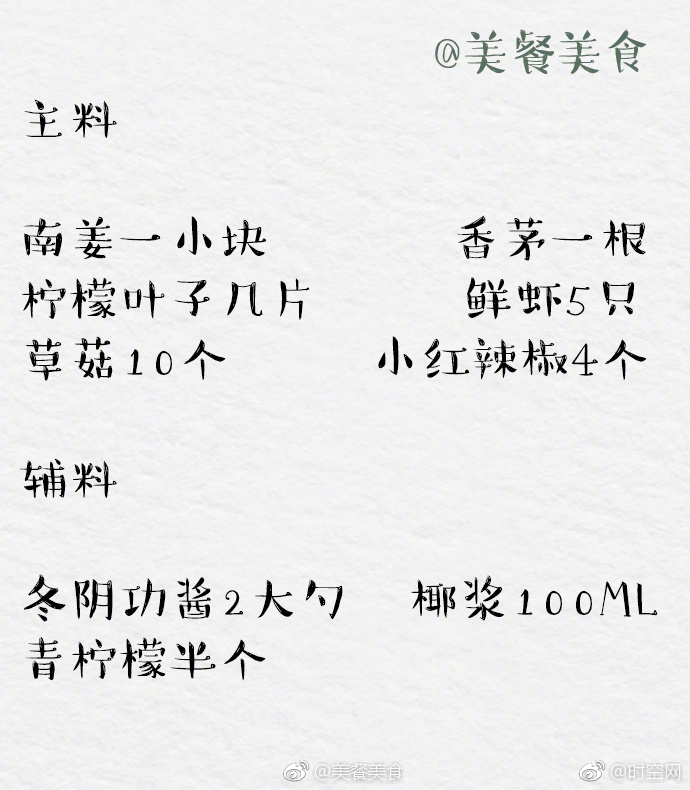 @美餐美食
主料
南姜一小块 香茅一根
柠檬叶子几片 鲜虾5只
草菇10个 小红辣椒4个
辅料
冬阴功酱2大勺 椰浆100ML
青柠檬半个
@美餐美食 @时空网